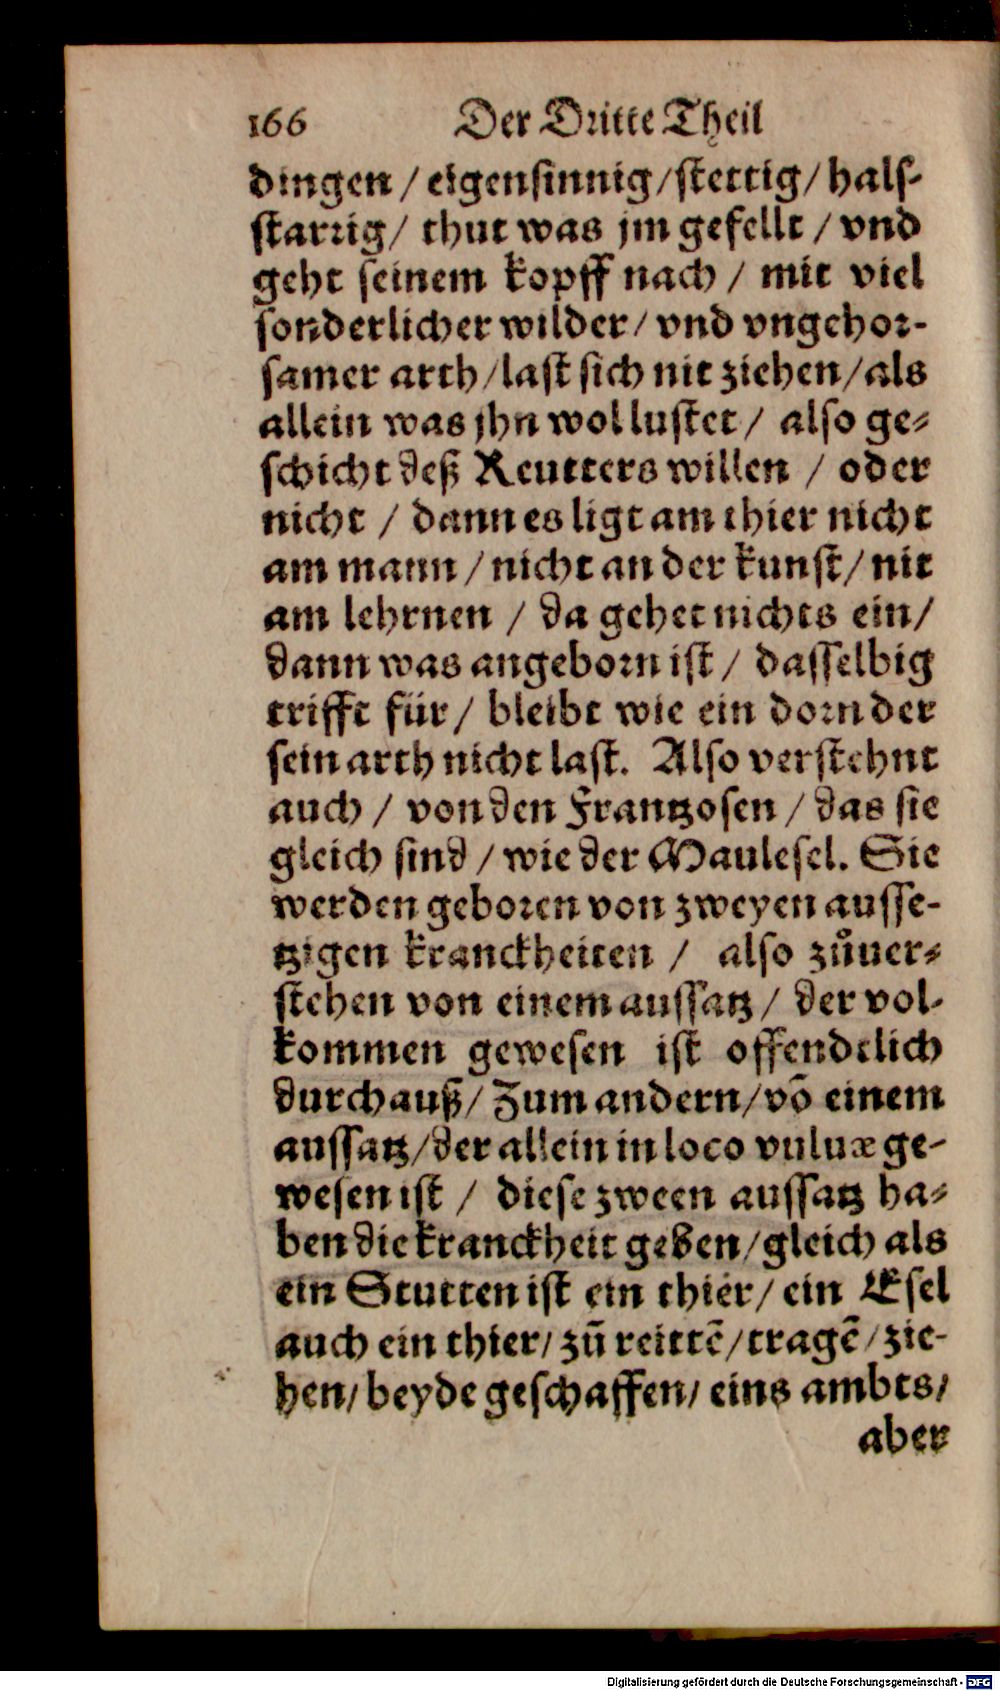 166 Der Dritte Theil
dingen / eigensinnig / stettig / hals-
starrig / thut was jm gefellt / vnd
geht seinem kopff nach / mit viel
sonderlicher wilder / vnd vngehor-
samer arth / last sich nit ziehen / als
allein was jhn wol lustet / also ge-
schicht deß Reutters willen / oder
nicht / dann es ligt am thier nicht
am mann / nicht an der kunst / nit
am lehrnen / da gehet nichts ein /
dann was angeborn ist / dasselbig
trifft für / bleibt wie ein dorn der
sein arth nicht last. Also verstehnt
auch / von den Frantzosen / das sie
gleich sind / wie der Maulesel. Sie
werden geboren von zweyen ausse-
tzigen kranckheiten / also zůuer-
stehen von einem aussatz / der vol-
kommen gewesen ist offendtlich
durchauß / Zum andern / võ einem
aussatz / der allein in loco vuluæ ge-
wesen ist / diese zween aussatz ha-
ben die kranckheit geben / gleich als
ein Stutten ist ein thier / ein Esel
auch ein thier / zũ reittẽ / tragẽ / zie-
hen / beyde geschaffen / eins ambts /
aber
Digitalisierung gefördert durch die Deutsche Forschungsgemeinschaft - DFG